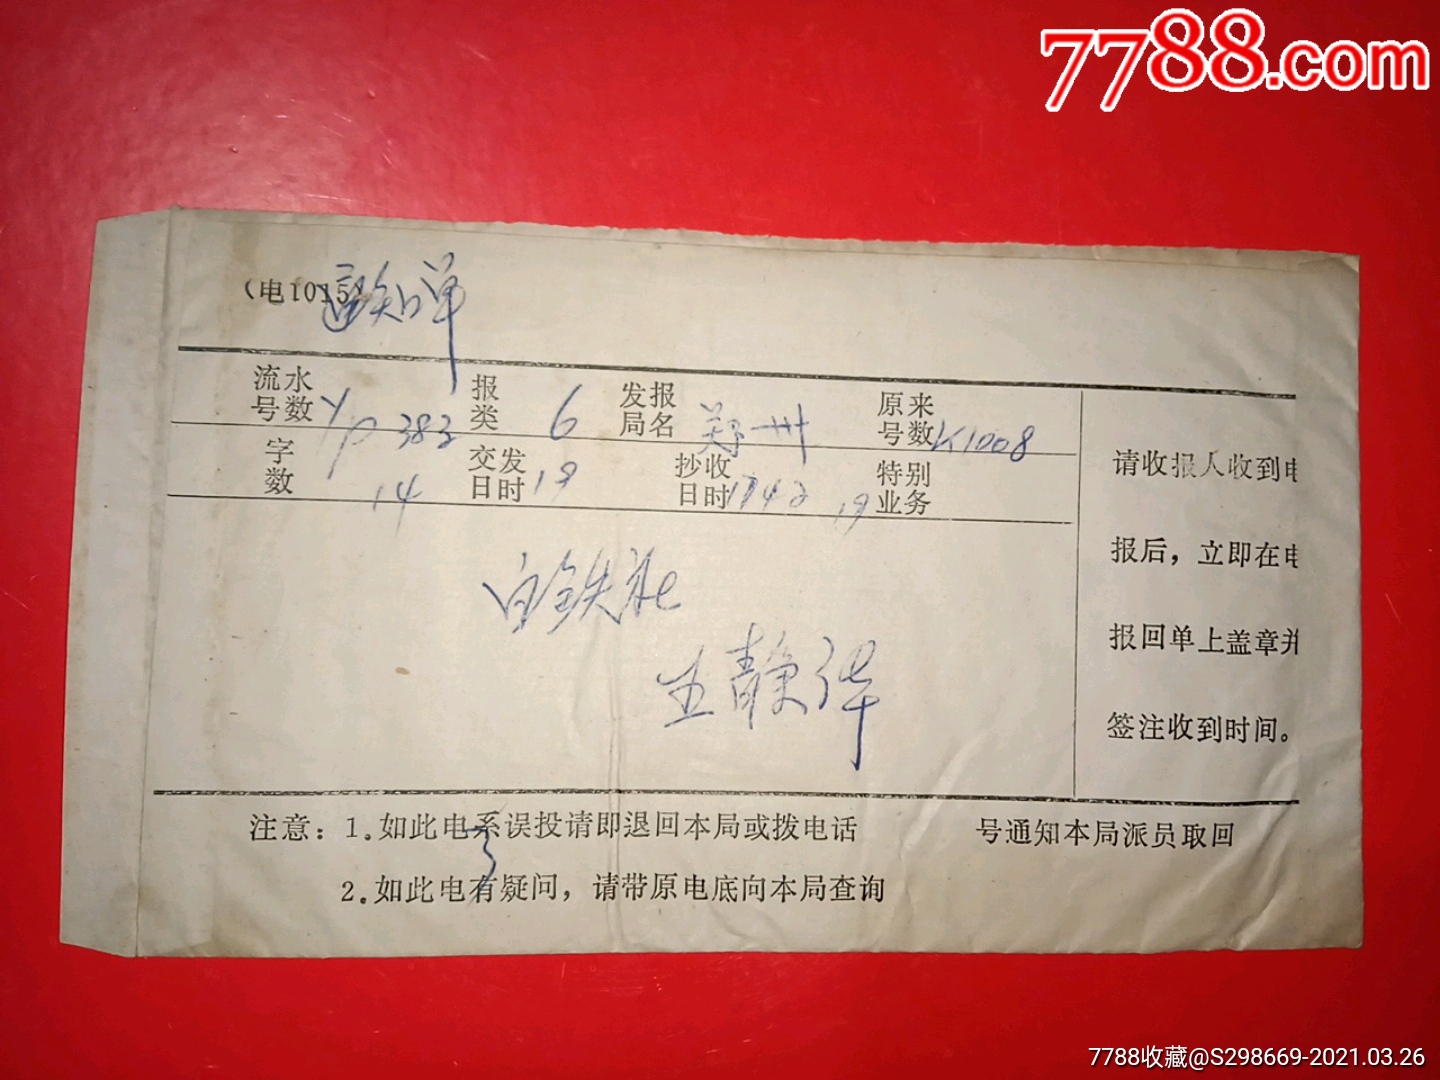 7788.com
（电1015）
通知单
流水号数 YP 383 报类 6 发报局名 郑州 原来号数 K1008
字数 14 交发日时 19 抄收日时 1742 19 特别业务
请收报人收到电
报后，立即在电
报回单上盖章并
签注收到时间。
白铁社
王静华
注意：1.如此电系误投请即退回本局或拨电话 号通知本局派员取回
2.如此电有疑问，请带原电底向本局查询
7788收藏@S298669-2021.03.26